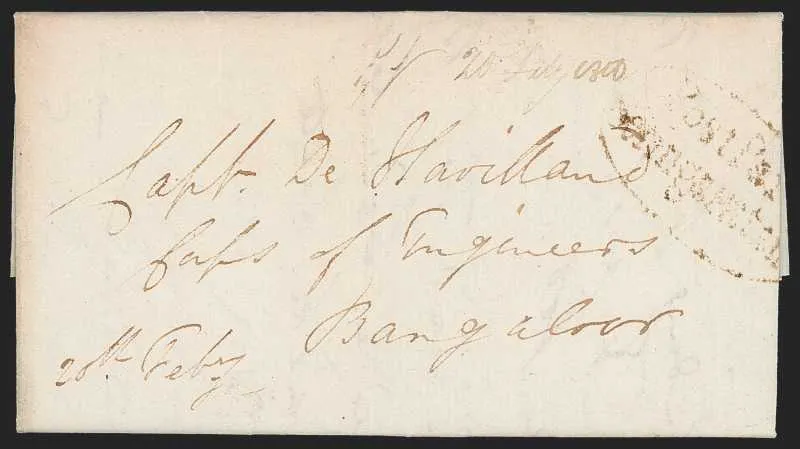 20 Feby 1800
Capt. De Havilland
Corps of Engineers
Bangaloor
20th Feby
POST PAID